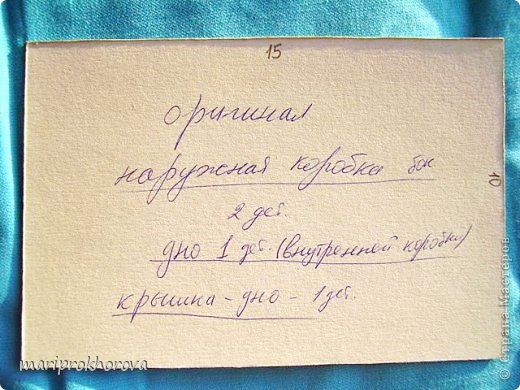 15
оригинал
наружная коробка бок
10
2 дет.
дно 1 дет. (внутренней коробки)
крышка - дно - 1 дет.
mariprokhorova
© Страна Мастеров